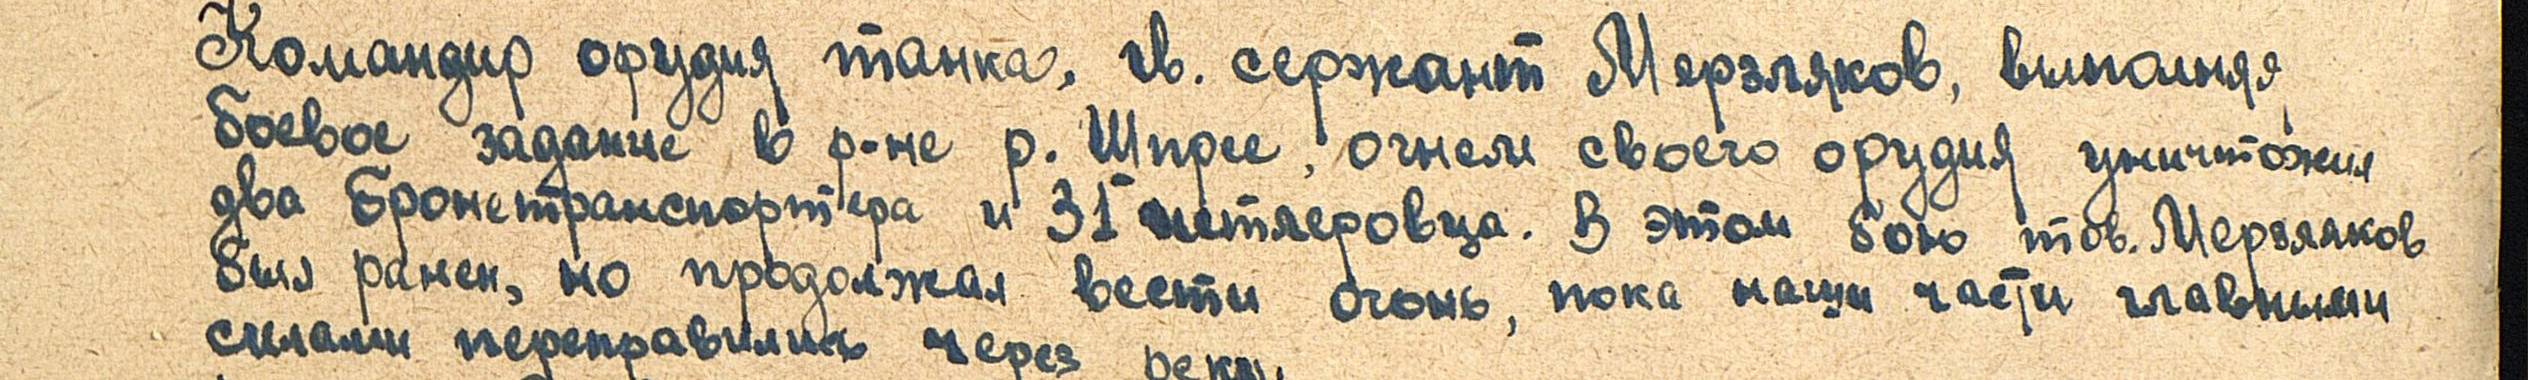 Командир орудия танка, гв. сержант Мерзляков, выполняя
боевое задание в р-не р. Шпрее, огнем своего орудия уничтожил
два бронетранспортера и 31 гитлеровца. В этом бою тов. Мерзляков
был ранен, но продолжал вести огонь, пока наши части главными
силами переправились через реку.